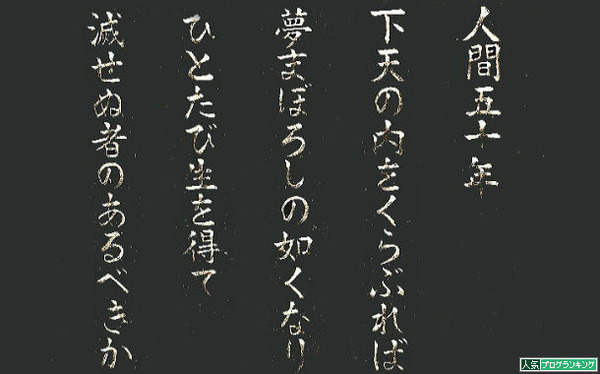 人間五十年
下天の内をくらぶれば
夢まぼろしの如くなり
ひとたび生を得て
滅せぬ者のあるべきか
人気ブログランキング